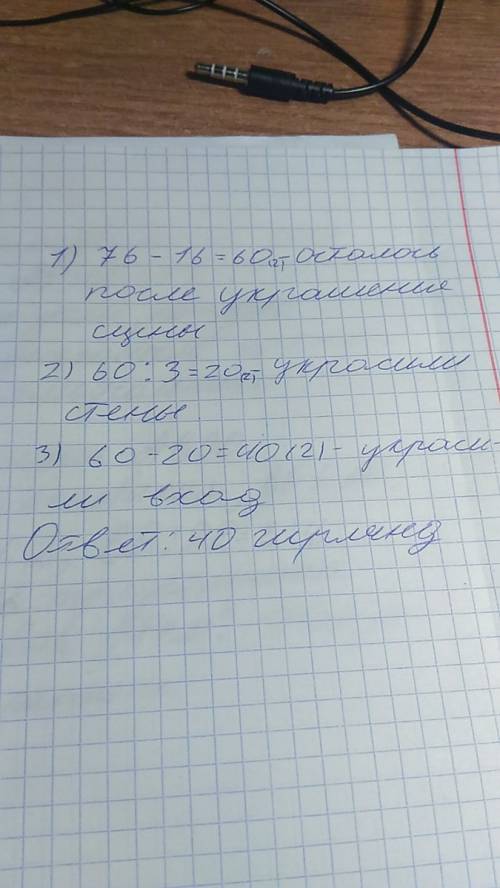 1) 76 - 16 = 60(г) - осталось
после украшения
сцены
2) 60 : 3 = 20(г) - украсили
стены.
3) 60 - 20 = 40 (г) - украси-
ли вход
Ответ: 40 гирлянд